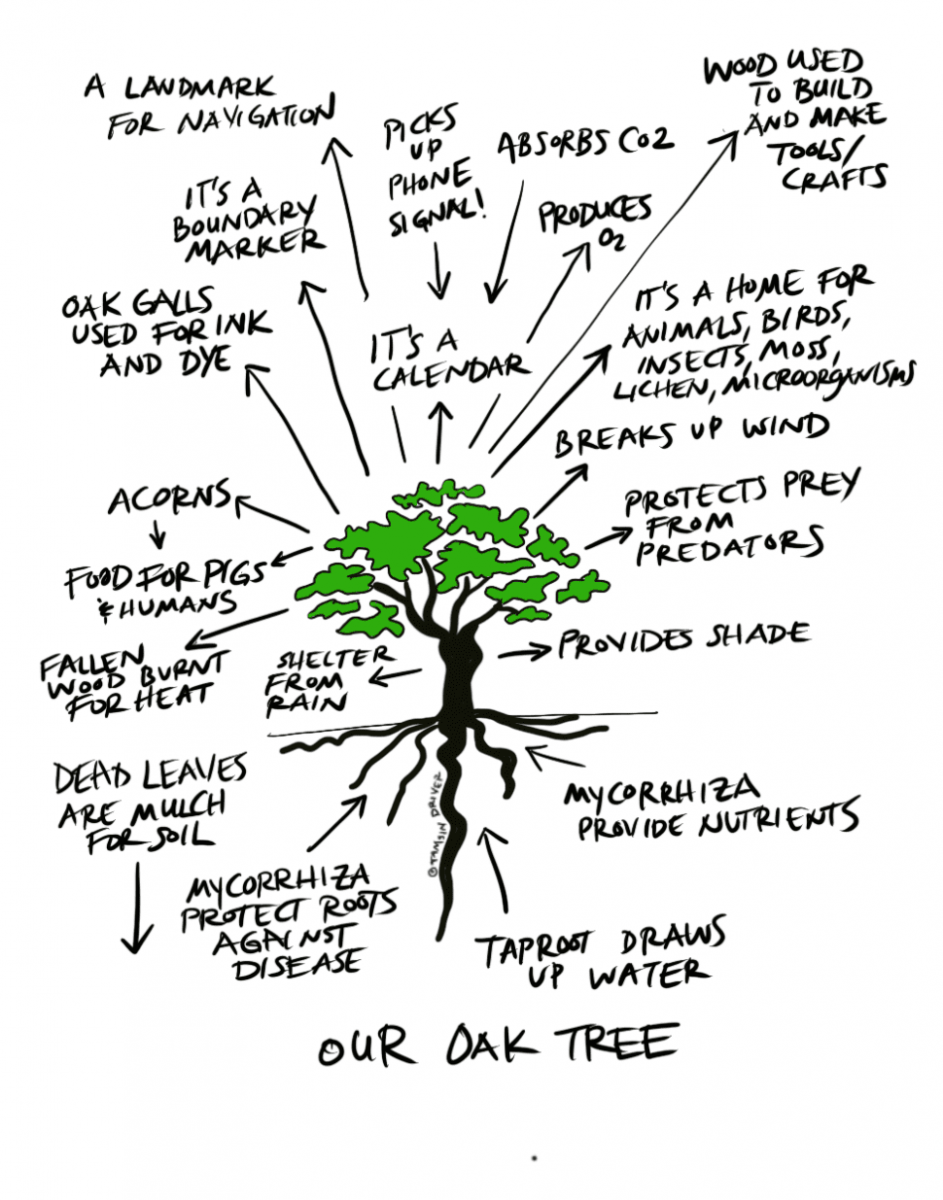 A LANDMARK
FOR NAVIGATION
PICKS
UP
PHONE
SIGNAL!
ABSORBS CO2
WOOD USED
TO BUILD
AND MAKE
TOOLS/
CRAFTS
IT'S A
BOUNDARY
MARKER
PRODUCES
O2
OAK GALLS
USED FOR INK
AND DYE
IT'S A
CALENDAR
IT'S A HOME FOR
ANIMALS, BIRDS,
INSECTS, MOSS,
LICHEN, MICROORGANISMS
BREAKS UP WIND
ACORNS
FOOD FOR PIGS
& HUMANS
PROTECTS PREY
FROM
PREDATORS
FALLEN
WOOD BURNT
FOR HEAT
SHELTER
FROM
RAIN
PROVIDES SHADE
DEAD LEAVES
ARE MULCH
FOR SOIL
MYCORRHIZA
PROVIDE NUTRIENTS
©TAMSIN DRIVER
MYCORRHIZA
PROTECT ROOTS
AGAINST
DISEASE
TAPROOT DRAWS
UP WATER
OUR OAK TREE